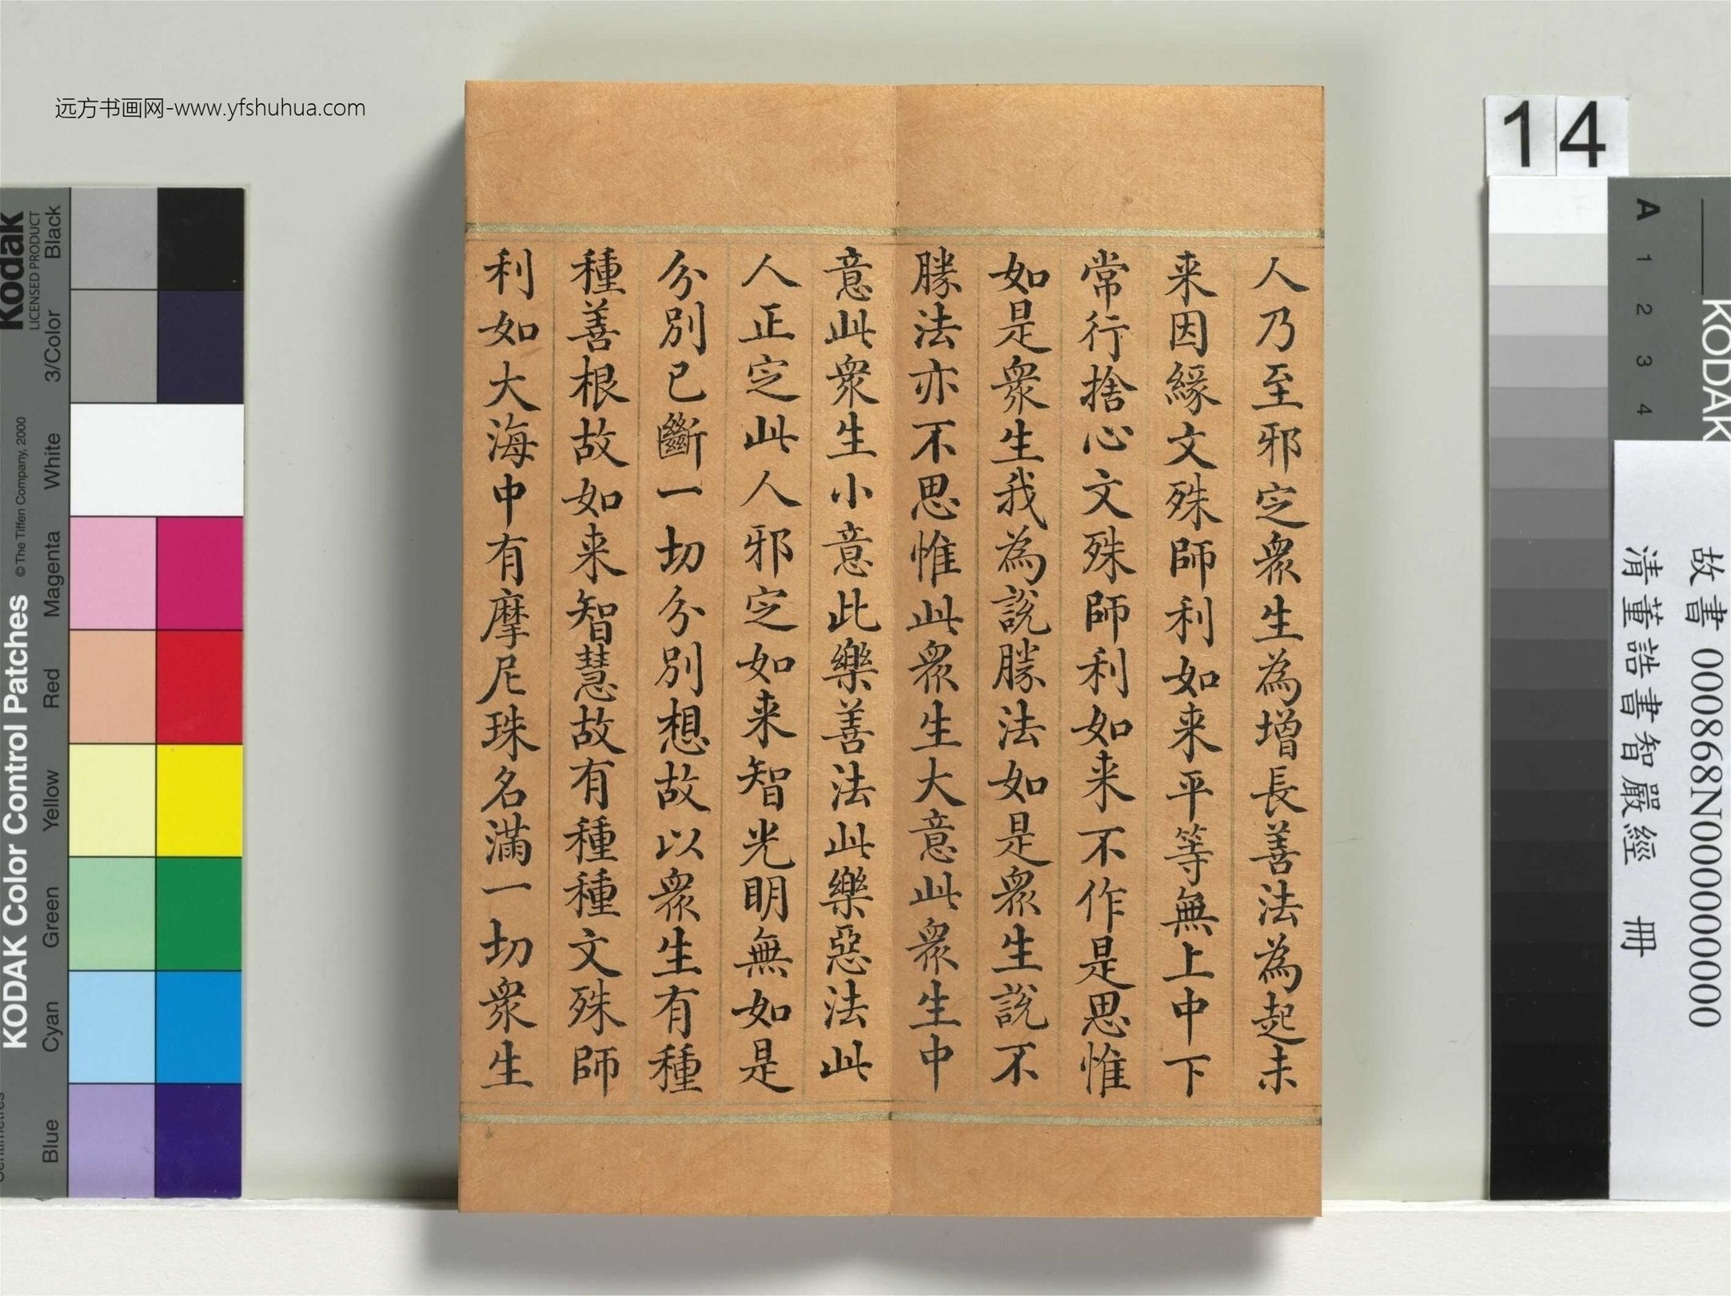 远方书画网-www.yfshuhua.com
人乃至邪定衆生為增長善法為起未
来因緣文殊師利如来平等無上中下
常行捨心文殊師利如来不作是思惟
如是衆生我為說勝法如是衆生說不
勝法亦不思惟此衆生大意此衆生中
意此衆生小意此樂善法此樂惡法此
人正定此人邪定如来智光明無如是
分別已斷一切分別想故以衆生有種
種善根故如来智慧故有種種文殊師
利如大海中有摩尼珠名滿一切衆生
14
KODAK
A 1 2 3 4
故書 000868N000000000
清董誥書智嚴經 冊
Kodak
LICENSED PRODUCT
KODAK Color Control Patches
©The Tiffen Company, 2000
Black
3/Color
White
Magenta
Red
Yellow
Green
Cyan
Blue